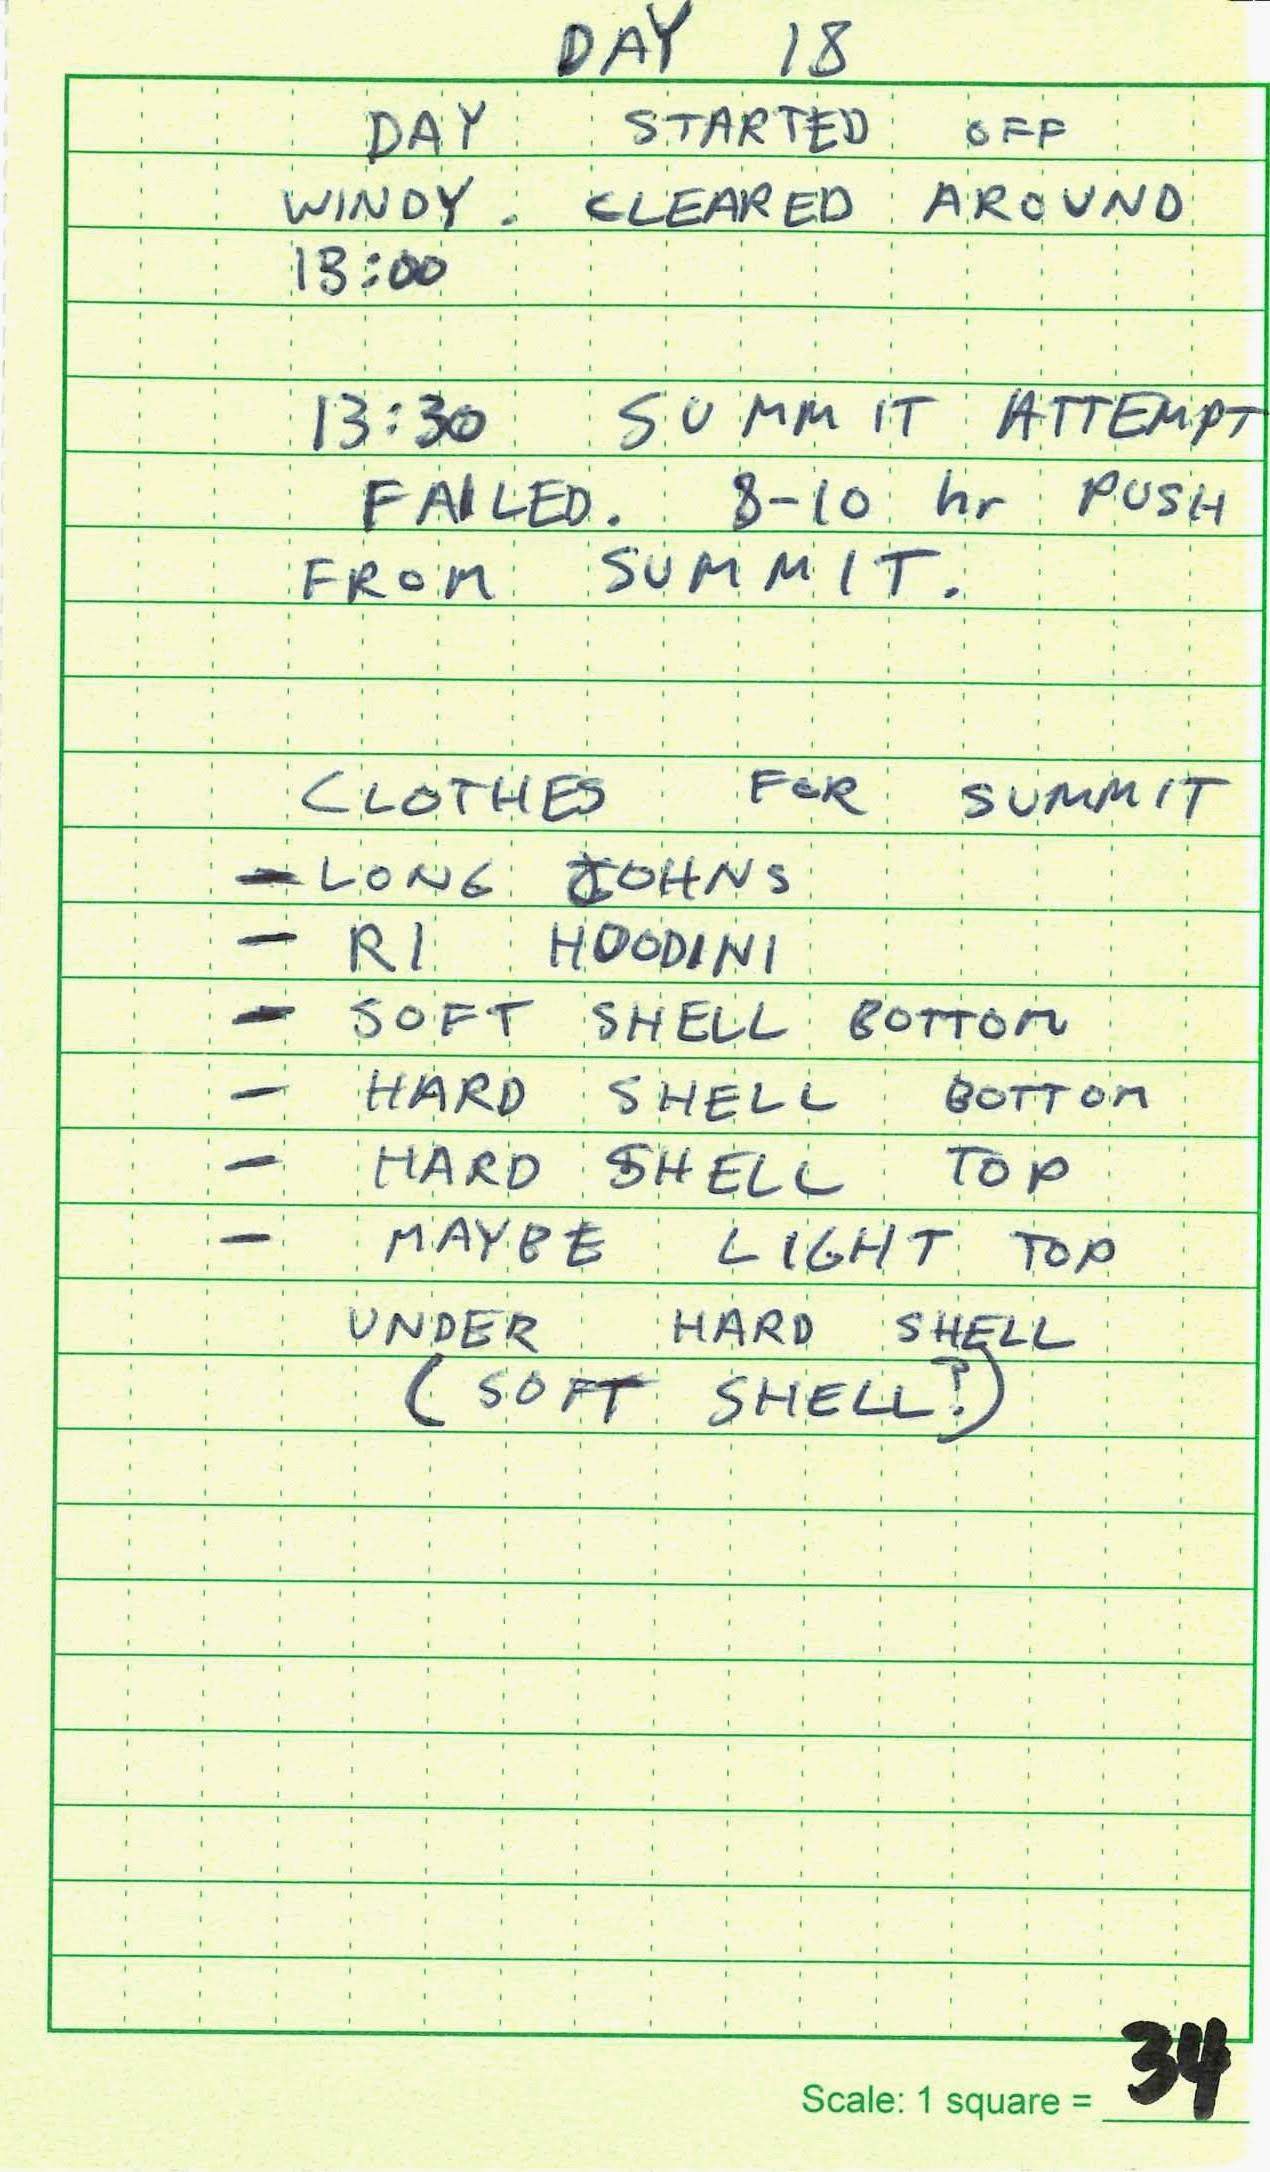 DAY 18
DAY STARTED OFF
WINDY. CLEARED AROUND
13:00
13:30 SUMMIT ATTEMPT
FAILED. 8-10 hr PUSH
FROM SUMMIT.
CLOTHES FOR SUMMIT
- LONG JOHNS
- R1 HOODINI
- SOFT SHELL BOTTOM
- HARD SHELL BOTTOM
- HARD SHELL TOP
- MAYBE LIGHT TOP
UNDER HARD SHELL
(SOFT SHELL?)
34
Scale: 1 square =